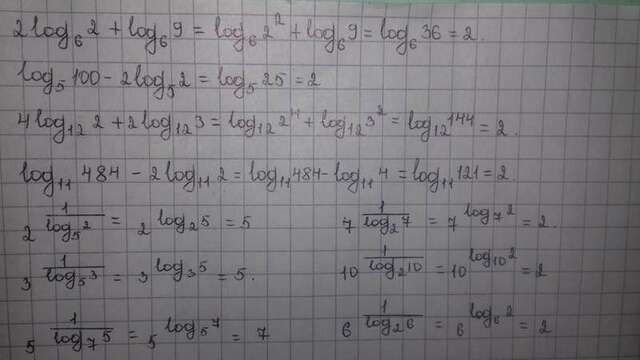 2log₆2 + log₆9 = log₆2² + log₆9 = log₆36 = 2.
log₅100 - 2log₅2 = log₅25 = 2
4log₁₂2 + 2log₁₂3 = log₁₂2⁴ + log₁₂3² = log₁₂144 = 2.
log₁₁484 - 2log₁₁2 = log₁₁484 - log₁₁4 = log₁₁121 = 2
2^(1/log₅2) = 2^(log₂5) = 5 7^(1/log₂7) = 7^(log₇2) = 2.
3^(1/log₅3) = 3^(log₃5) = 5. 10^(1/log₂10) = 10^(log₁₀2) = 2
5^(1/log₇5) = 5^(log₅7) = 7 6^(1/log₂6) = 6^(log₆2) = 2